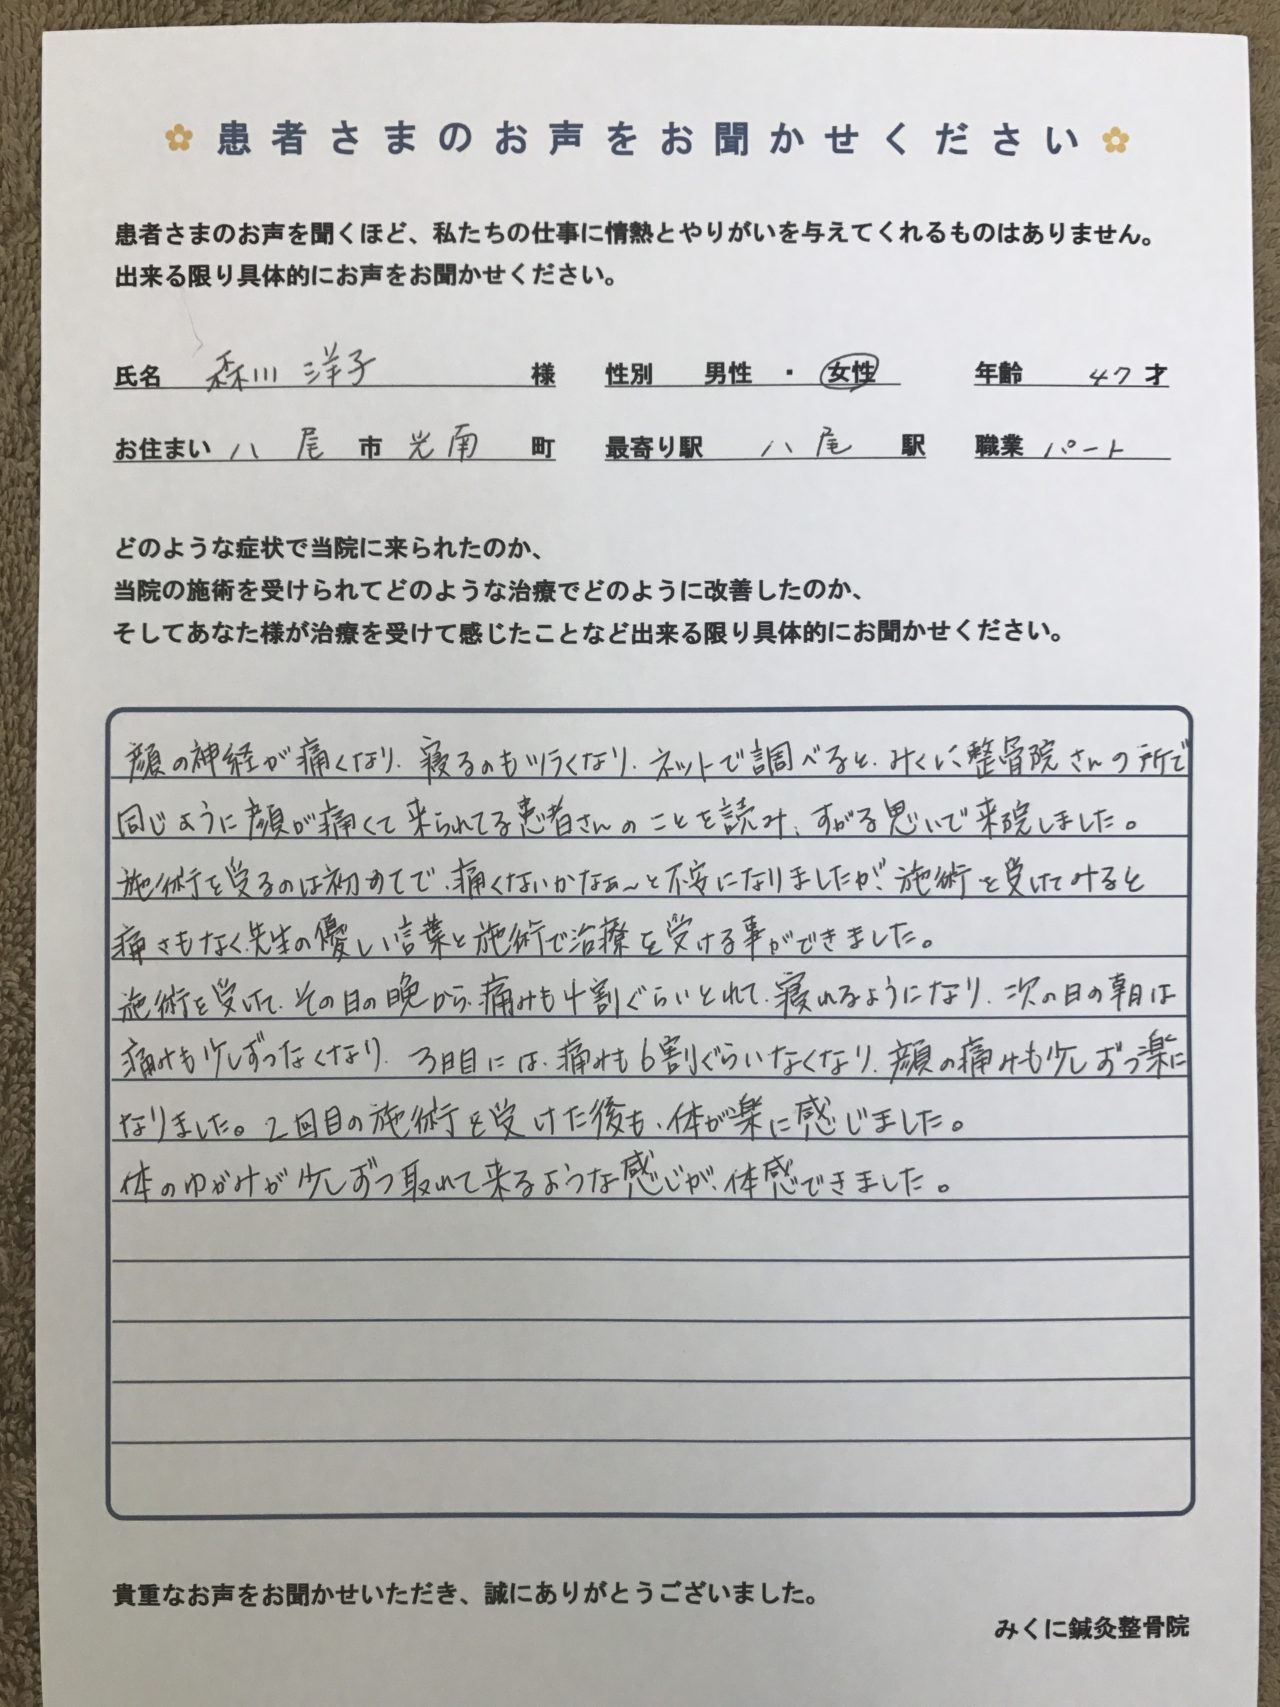 患者さまのお声をお聞かせください
患者さまのお声を聞くほど、私たちの仕事に情熱とやりがいを与えてくれるものはありません。
出来る限り具体的にお声をお聞かせください。
氏名 森川 洋子 様 性別 男性 ・ 女性 年齢 47才
お住まい 八尾 市 光南 町 最寄り駅 八尾 駅 職業 パート
どのような症状で当院に来られたのか、
当院の施術を受けられてどのような治療でどのように改善したのか、
そしてあなた様が治療を受けて感じたことなど出来る限り具体的にお聞かせください。
顔の神経が痛くなり、寝るのもツラくなり、ネットで調べると、みくに整骨院さんの所で
同じように顔が痛くて来られてる患者さんのことを読み、すがる思いで来院しました。
施術を受るのは初めてで、痛くないかなぁ〜と不安になりましたが、施術を受けてみると
痛さもなく、先生の優しい言葉と施術で治療を受ける事ができました。
施術を受けて、その日の晩から、痛みも4割ぐらいとれて、寝れるようになり、次の日の朝は
痛みも少しずつなくなり、3日目には、痛みも6割ぐらいなくなり、顔の痛みも少しずつ楽に
なりました。2回目の施術を受けた後も、体が楽に感じました。
体のゆがみが少しずつ取れて来るような感じが、体感できました。
貴重なお声をお聞かせいただき、誠にありがとうございました。
みくに鍼灸整骨院